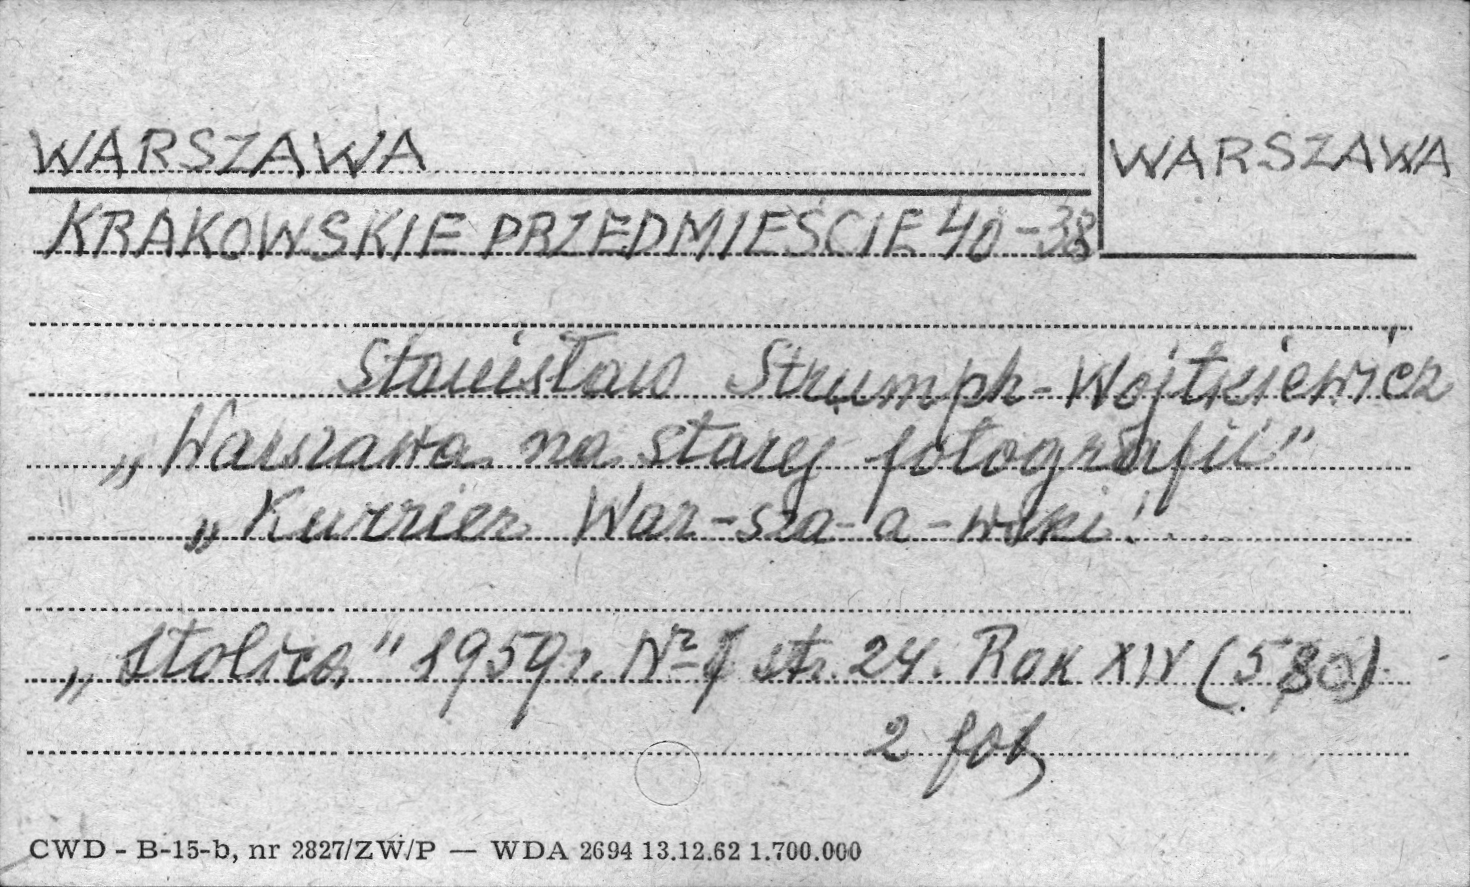 WARSZAWA
WARSZAWA
KRAKOWSKIE PRZEDMIEŚCIE 40-38
Stanisław Strumph-Wojtkiewicz
„Warszawa na starej fotografii"
„Kurrier War-sza-a-wski!
„Stolica" 1959 r. Nr st. 24. Rok XIV (580)
2 fot
CWD - B-15-b, nr 2827/ZW/P — WDA 2694 13.12.62 1.700.000